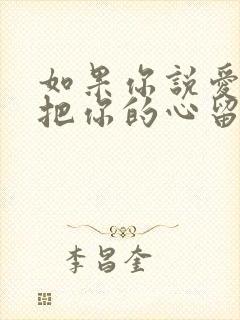 如果你説愛
把你的心留
李昌奎